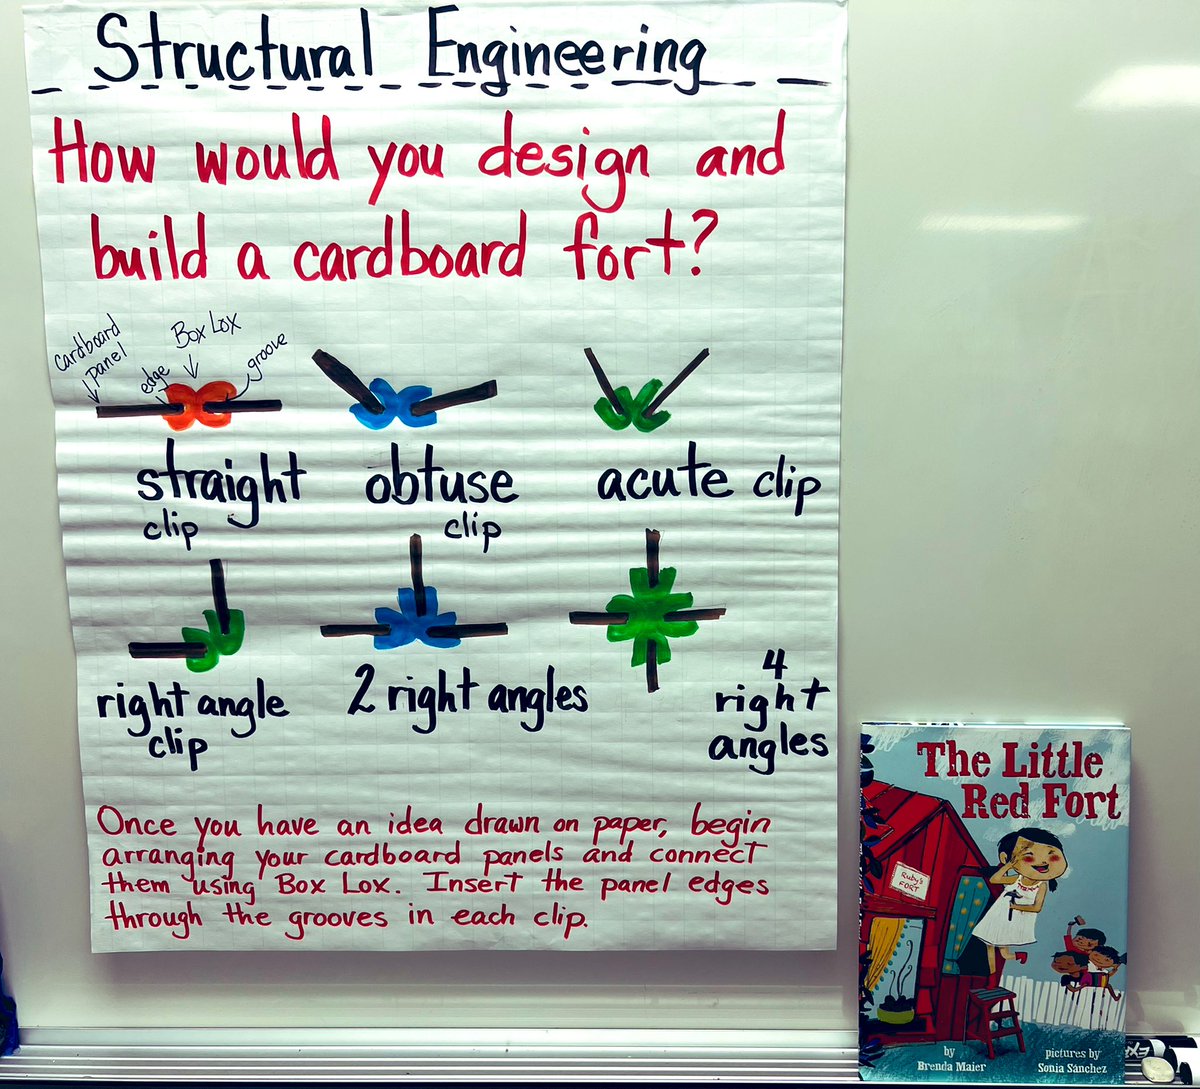 Structural Engineering
How would you design and
build a cardboard fort?
cardboard
panel
edge
Box Lox
groove
straight
clip
obtuse
clip
acute clip
right angle
clip
2 right angles
4
right
angles
Once you have an idea drawn on paper, begin
arranging your cardboard panels and connect
them using Box Lox. Insert the panel edges
through the grooves in each clip.
The Little
Red Fort
Ruby's
FORT
by
Brenda Maier
pictures by
Sonia Sánchez